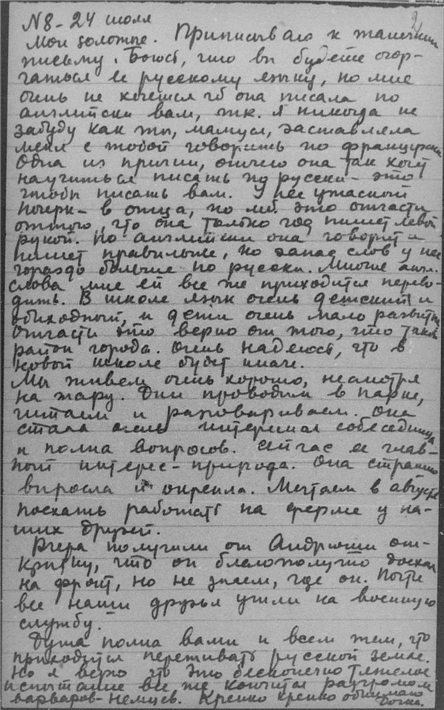 N8 - 24 июля
Мои золотые. Приписываю к Таличкину
письму. Боюсь, что вы будете огор-
чаться ее русскому языку, но мне
очень не хочется чтоб она писала по
английски вам, т.к. я никогда не
забуду как ты, мамуся, заставляла
меня с тобой говорить по французски
Одна из причин, отчего она так хочет
научиться писать по русски - это
чтобы писать вам. У нее ужасный
почерк - в отца, но м.б. это отчасти
оттого, что она только год пишет левой
рукой. По английски она говорит и
пишет правильнее, но запас слов у нее
гораздо больше по русски. Многие англ.
слова мне ей все же приходится перево-
дить. В школе язык очень детский и
обиходный, и дети очень мало развиты
Отчасти это верно от того, что такой
район города. Очень надеюсь, что в
новой школе будет иначе.
Мы живем очень хорошо, несмотря
на жару. Дни проводим в парке,
читаем и разговариваем. Она
стала очень интересная собеседница
и полна вопросов. Сейчас ее глав-
ный интерес - природа. Она страшно
выросла и окрепла. Мечтаем в августе
поехать работать на ферме у на-
ших друзей.
Вчера получили от Андрюши от-
крытку, что он благополучно доехал
на фронт, но не знаем, где он. Почти
все наши друзья ушли на военную
службу.
Душа полна вами и всем тем, что
приходится переживать русской земле.
Но я верю что это бесконечно тяжелое
испытание все же кончится разгромом
варваров-немцев. Крепко крепко обнимаю
Дочка.